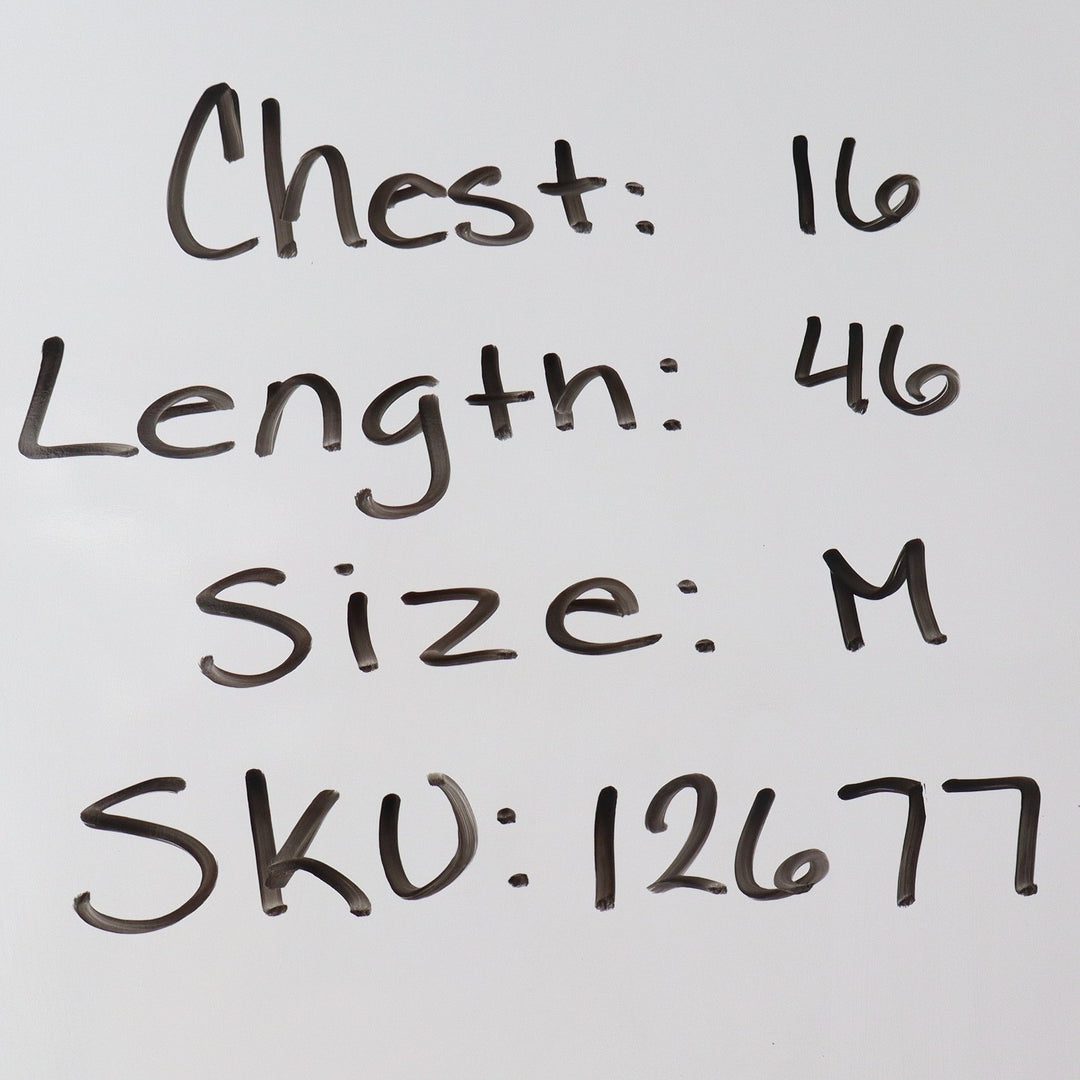 Chest: 16
Length: 46
Size: M
SKU: 12677